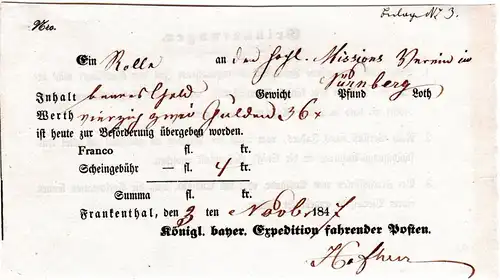 Nro. Beilage No 3.
Ein Rolle an den hohl. Missions Verein in
Nürnberg
Inhalt baares Geld Gewicht Pfund Loth
Werth vierzig zwei Gulden 36 x
ist heute zur Beförderung übergeben worden.
Franco fl. kr.
Scheingebühr — fl. 4 kr.
Summa fl. kr.
Frankenthal, den 3 ten Novbr 1847
Königl. bayer. Expedition fahrender Posten.